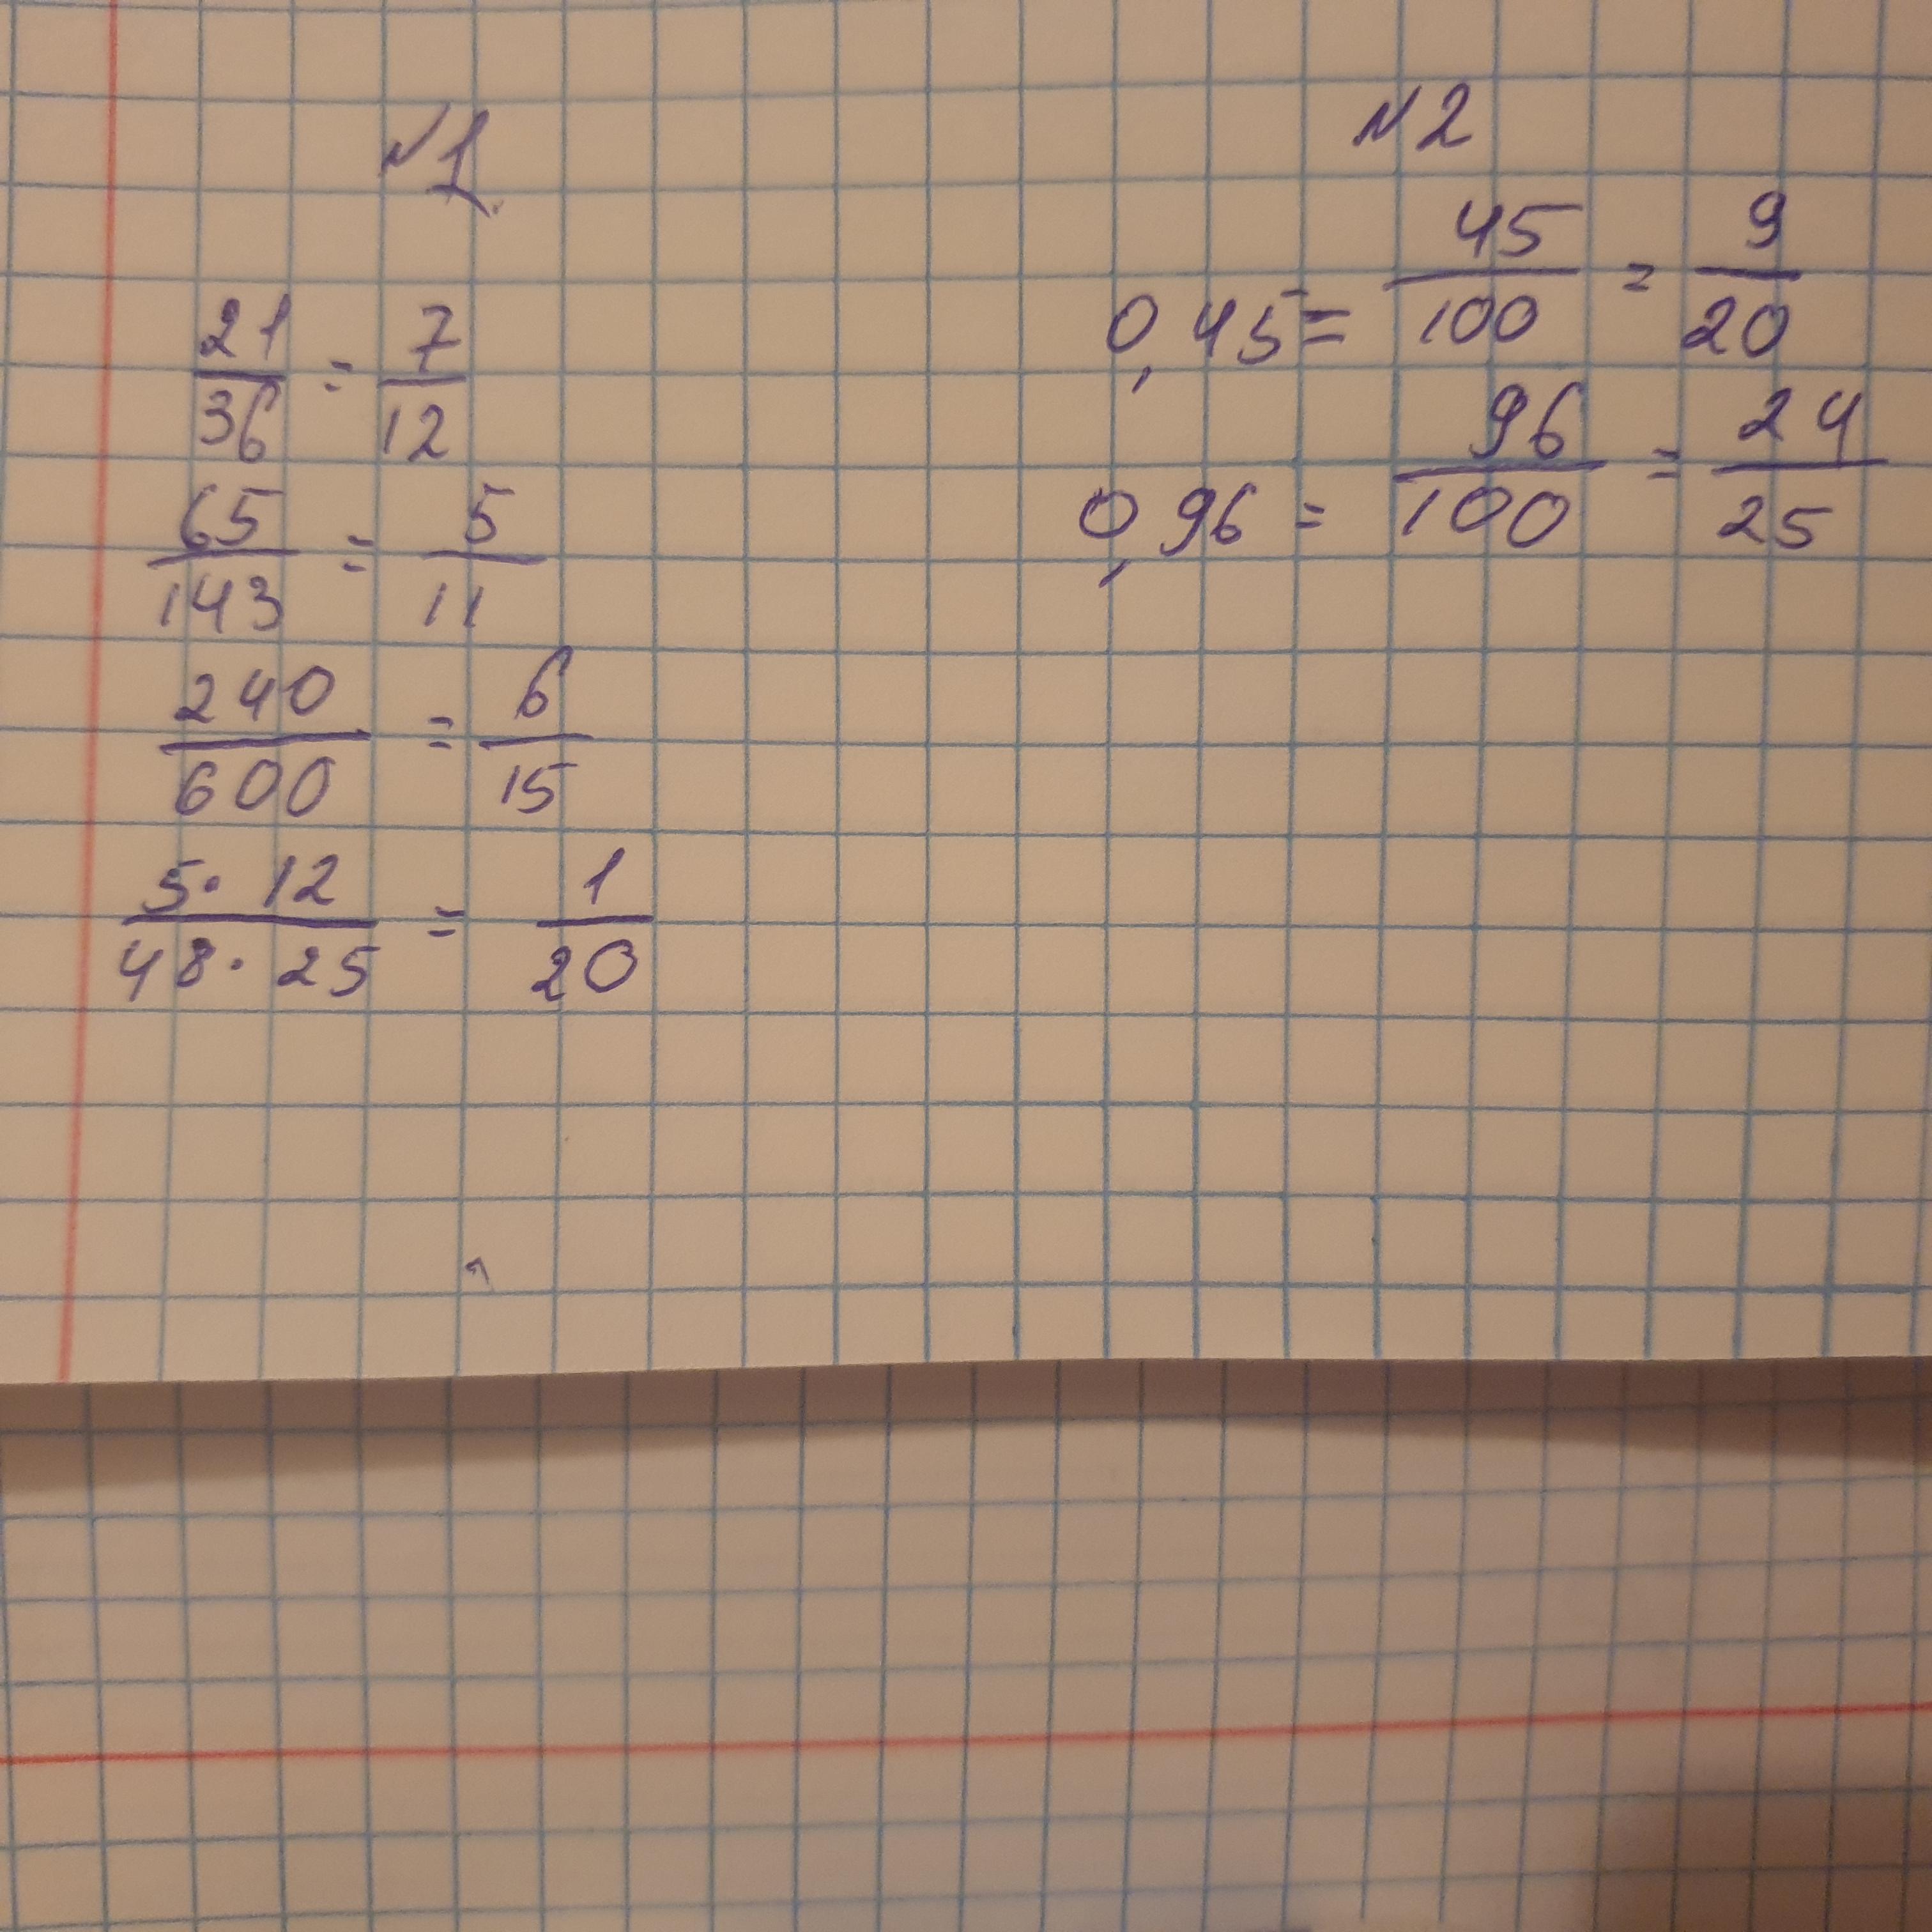 №1
21/36 = 7/12
65/143 = 5/11
240/600 = 6/15
5· 12/48· 25 = 1/20
№2
0,45 = 45/100 = 9/20
0,96 = 96/100 = 24/25